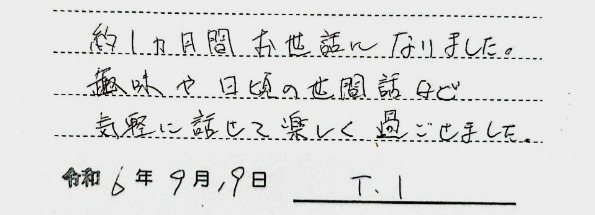 約1ヵ月間お世話になりました。
趣味や日頃の世間話など
気軽に話せて楽しく過ごせました。
令和6年9月19日 T.I